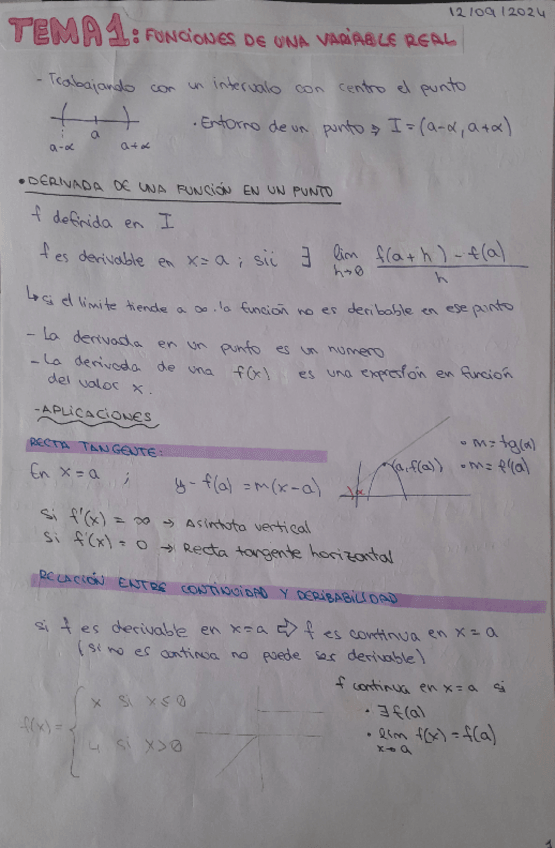 12/09/2024
TEMA 1: FUNCIONES DE UNA VARIABLE REAL
- Trabajando con un intervalo con centro el punto
a-α a a+α
• Entorno de un punto ⇒ I = (a-α, a+α)
• DERIVADA DE UNA FUNCIÓN EN UN PUNTO
f definida en I
f es derivable en x=a ; sii ∃ lim h→0 f(a+h) - f(a) / h
↳ si el limite tiende a ∞. la función no es deribable en ese punto
- La derivada en un punto es un numero
- La derivada de una f(x) es una expresión en función
del valor x.
- APLICACIONES
RECTA TANGENTE:
En x=a ; y - f(a) = m(x-a)
(a, f(a))
α
• m = tg(α)
• m = f'(a)
si f'(x) = ∞ → Asíntota vertical
si f'(x) = 0 → Recta tangente horizontal
RELACIÓN ENTRE CONTINUIDAD Y DERIBABILIDAD
si f es derivable en x=a ⇒ f es continua en x=a
(si no es continua no puede ser derivable)
f(x) = { x si x≤0
4 si x>0
f continua en x=a si
• ∃ f(a)
• lim x→a f(x) = f(a)
1